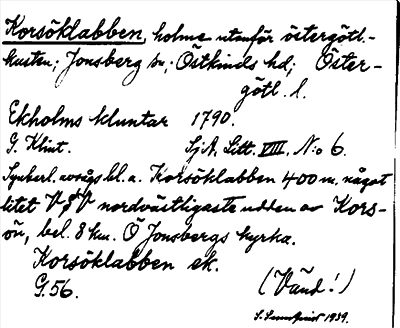 Korsöklabben, holme utanför östergötl.-
kusten; Jonsberg sn; Östkinds hd; Öster-
götl. l.
Ekholms kluntar 1790.
G. Klint. SjA. Litt. VIII. N:o 6.
Synkerl. avsågs bl. a. Korsöklabben 400 m. något
litet V om V nordvästligaste udden av Kors-
ön, bel. 8 km. O Jonsbergs kyrka.
Korsöklabben ek.
G.56. (Vänd!)
1939.